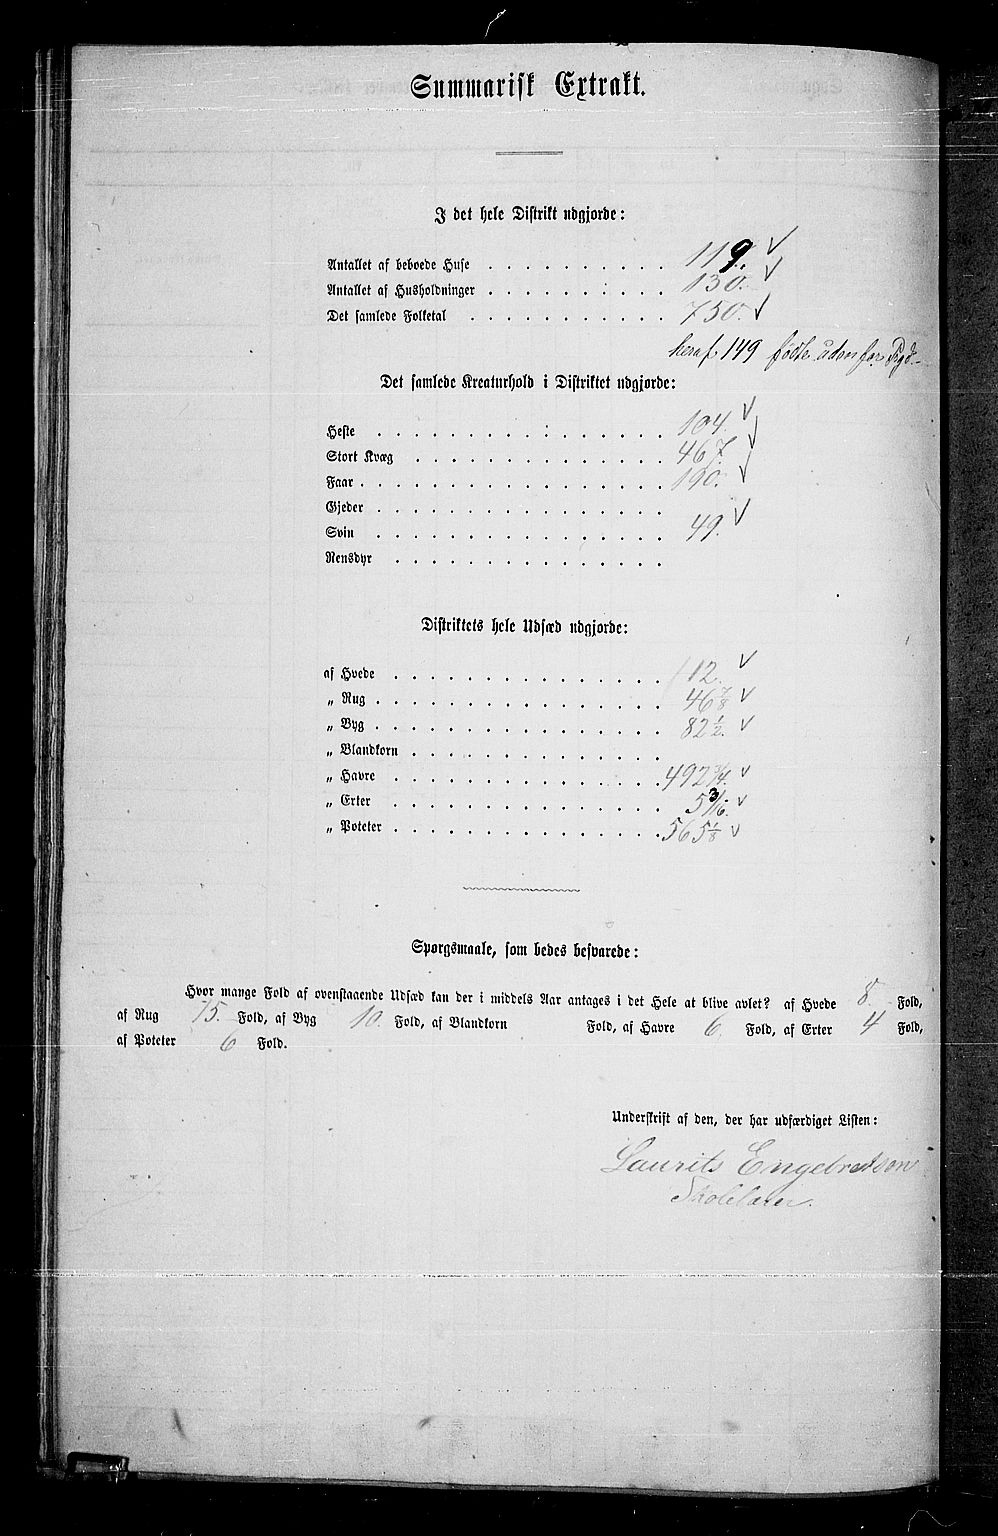 Summarisk Extrakt.
I det hele Distrikt udgjorde:
Antallet af beboede Huse . . . . . . . . . . 119. ✓
Antallet af Husholdninger . . . . . . . . . . 130. ✓
Det samlede Folketal . . . . . . . . . . 750. ✓
heraf 149 fødte udenfor Prgd.
Det samlede Kreaturhold i Distriktet udgjorde:
Heste . . . . . . . . . . 104. ✓
Stort Kvæg . . . . . . . . . . 467. ✓
Faar . . . . . . . . . . 190. ✓
Gjeder . . . . . . . . . .
Svin . . . . . . . . . . 49. ✓
Rensdyr . . . . . . . . . .
Distriktets hele Udsæd udgjorde:
af Hvede . . . . . . . . . . 12. ✓
„ Rug . . . . . . . . . . 46 7/8 ✓
„ Byg . . . . . . . . . . 82 1/2. ✓
„ Blandkorn . . . . . . . . . .
„ Havre . . . . . . . . . . 492 3/4. ✓
„ Erter . . . . . . . . . . 5 3/16. ✓
„ Poteter . . . . . . . . . . 565 1/8 ✓
Spørgsmaale, som bedes besvarede:
Hvor mange Fold af ovenstaaende Udsæd kan der i middels Aar antages i det Hele at blive avlet? af Hvede 8. Fold,
af Rug 15. Fold, af Byg 10. Fold, af Blandkorn Fold, af Havre 6 Fold, af Erter 4 Fold,
af Poteter 6 Fold.
Underskrift af den, der har udfærdiget Listen:
Laurits Engebretsen
Skolelærer.